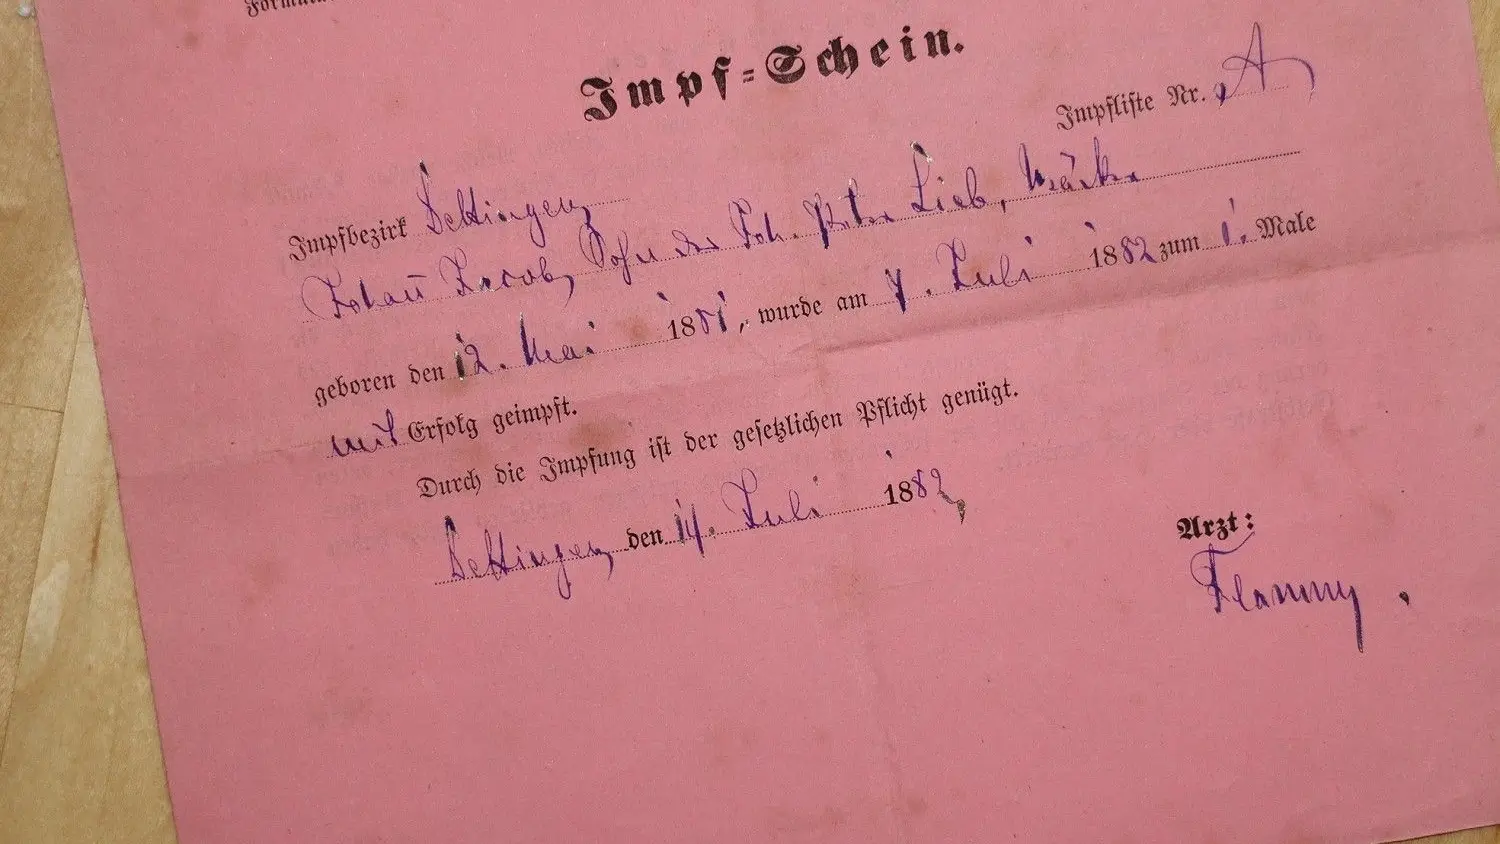 Formular
Impf-Schein.
Impfliste Nr. A
Impfbezirk Dettingen
Johañ Jacob, Sohn des Joh. Peter Lieb,
geboren den 12. Mai 1881, wurde am 7. Juli 1882 zum 1. Male
mit Erfolg geimpft.
Durch die Impfung ist der gesetzlichen Pflicht genügt.
Dettingen den 14. Juli 1882,
Arzt: